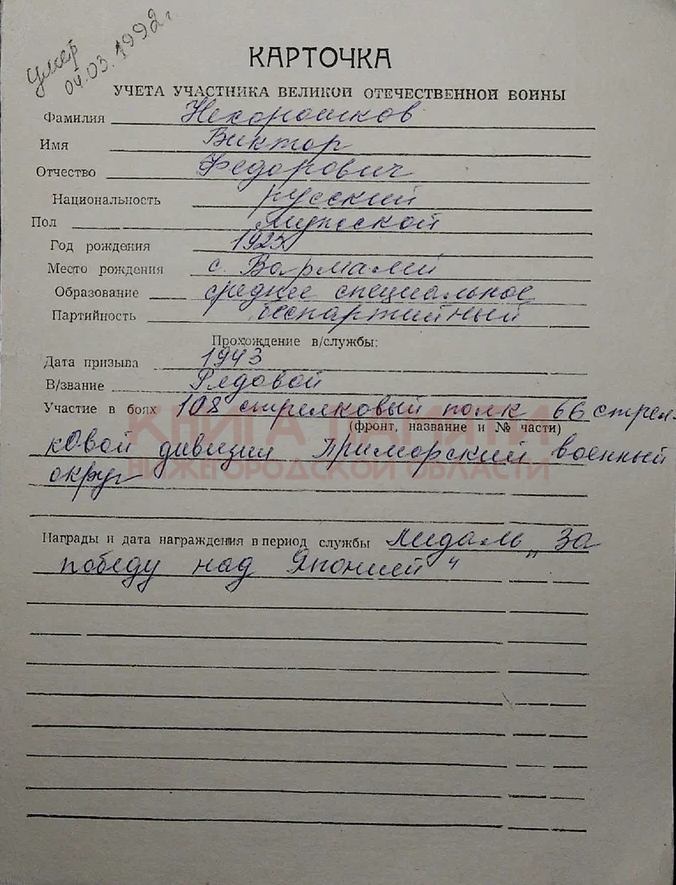 умер
04.03.1992г
КАРТОЧКА
УЧЕТА УЧАСТНИКА ВЕЛИКОЙ ОТЕЧЕСТВЕННОЙ ВОЙНЫ
Фамилия Нехорошков
Имя Виктор
Отчество Федорович
Национальность русский
Пол мужской
Год рождения 1925
Место рождения с. Вармалей
Образование среднее специальное
Партийность беспартийный
Прохождение в/службы:
Дата призыва 1943
В/звание Рядовой
Участие в боях 108 стрелковый полк 66 стрел-
(фронт, название и № части)
ковой дивизии Приморский военный
округ
КНИГА ПАМЯТИ
НИЖЕГОРОДСКОЙ ОБЛАСТИ
Награды и дата награждения в период службы Медаль „За
победу над Японией"